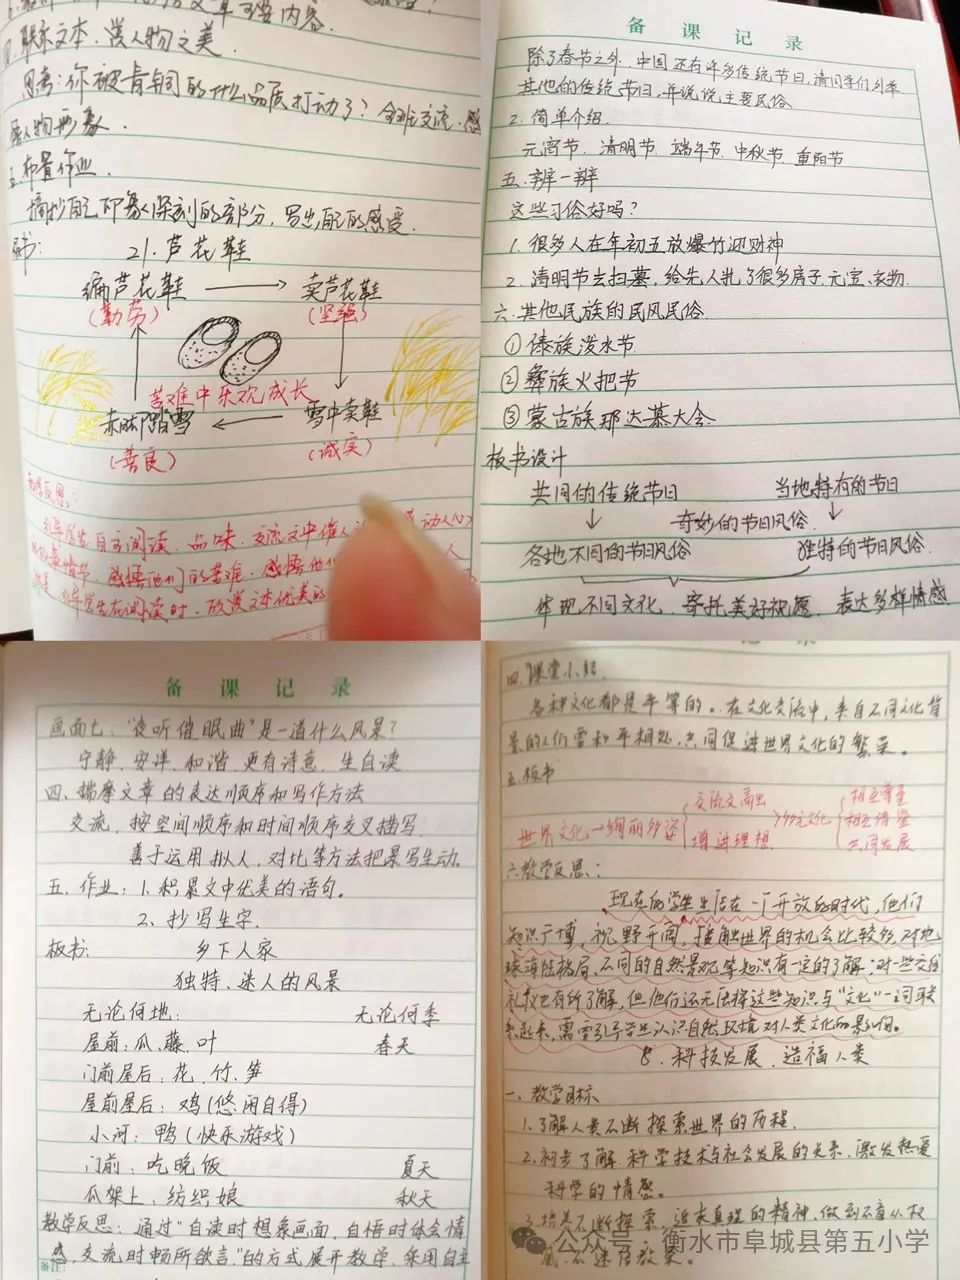 四.联系文本,赏人物之美.
思考:你被青铜的什么品质打动了?全班交流.感
悟人物形象.
五.布置作业.
摘抄自己印象深刻的部分,写出自己的感受.
板书:
21.芦花鞋
编芦花鞋 → 卖芦花鞋
(勤劳) (坚强)
苦难中乐观成长
赤脚踏雪 ← 雪中卖鞋
(善良) (诚实)
教学反思:
引导学生自主阅读、品味、交流文中
情节,感悟他们的苦难,感悟他们
引导学生在阅读时,欣赏文本优美的
备课记录
除了春节之外,中国还有许多传统节日,请同学们列举
其他的传统节日,并说说主要民俗
2.简单介绍.
元宵节、清明节、端午节、中秋节、重阳节
五.辨一辨
这些习俗好吗?
1.很多人在年初五放爆竹迎财神
2.清明节去扫墓,给先人扎了很多房子、元宝、衣物.
六.其他民族的民风民俗.
①傣族泼水节
②彝族火把节
③蒙古族那达慕大会.
板书设计
共同的传统节日 当地特有的节日
↓ 奇妙的节日风俗 ↓
各地不同的节日风俗 独特的节日风俗.
体现不同文化、寄托美好祝愿、表达多样情感
备课记录
画面七:"夜听催眠曲"是一道什么风景?
宁静、安详、和谐、更有诗意、生自读
四、揣摩文章的表达顺序和写作方法
交流,按空间顺序和时间顺序交叉描写.
善于运用拟人,对比等方法把景写生动.
五、作业:1.积累文中优美的语句。
2、抄写生字.
板书: 乡下人家
独特、迷人的风景
无论何地: 无论何季
屋前:瓜、藤、叶 春天
门前屋后:花、竹、笋
屋前屋后:鸡(悠闲自得)
小河:鸭(快乐游戏)
门前:吃晚饭 夏天
瓜架上:纺织娘 秋天
教学反思:通过"自读时想象画面,自悟时体会情
感,交流时畅所欲言"的方式展开教学,采用自主
备注:
四.课堂小结.
各种文化都是平等的。在文化交流中,来自不同文化背
景的人们需和平相处,共同促进世界文化的繁荣。
五.板书
世界文化→绚丽多姿 增进理想 多元文化 相互尊重
相互借鉴
共同发展
六.教学反思:
现在的学生生活在一个开放的时代,他们
知识广博,视野开阔,接触世界的机会比较多,对地
球海陆格局、不同的自然景观等知识有一定的了解;对一些文化
礼仪也有所了解,但他们还无法将这些知识与"文化"一词联
系起来,需要引导学生认识自然环境对人类文化的影响。
8.科技发展 造福人类
一、教学目标
1.了解人类不断探索世界的历程.
2.初步了解科学技术与社会发展的关系,激发热爱
科学的情感。
3.培养不断探索,追求真理的精神,做到不畏从权
威,不迷信教条。
公众号·衡水市阜城县第五小学